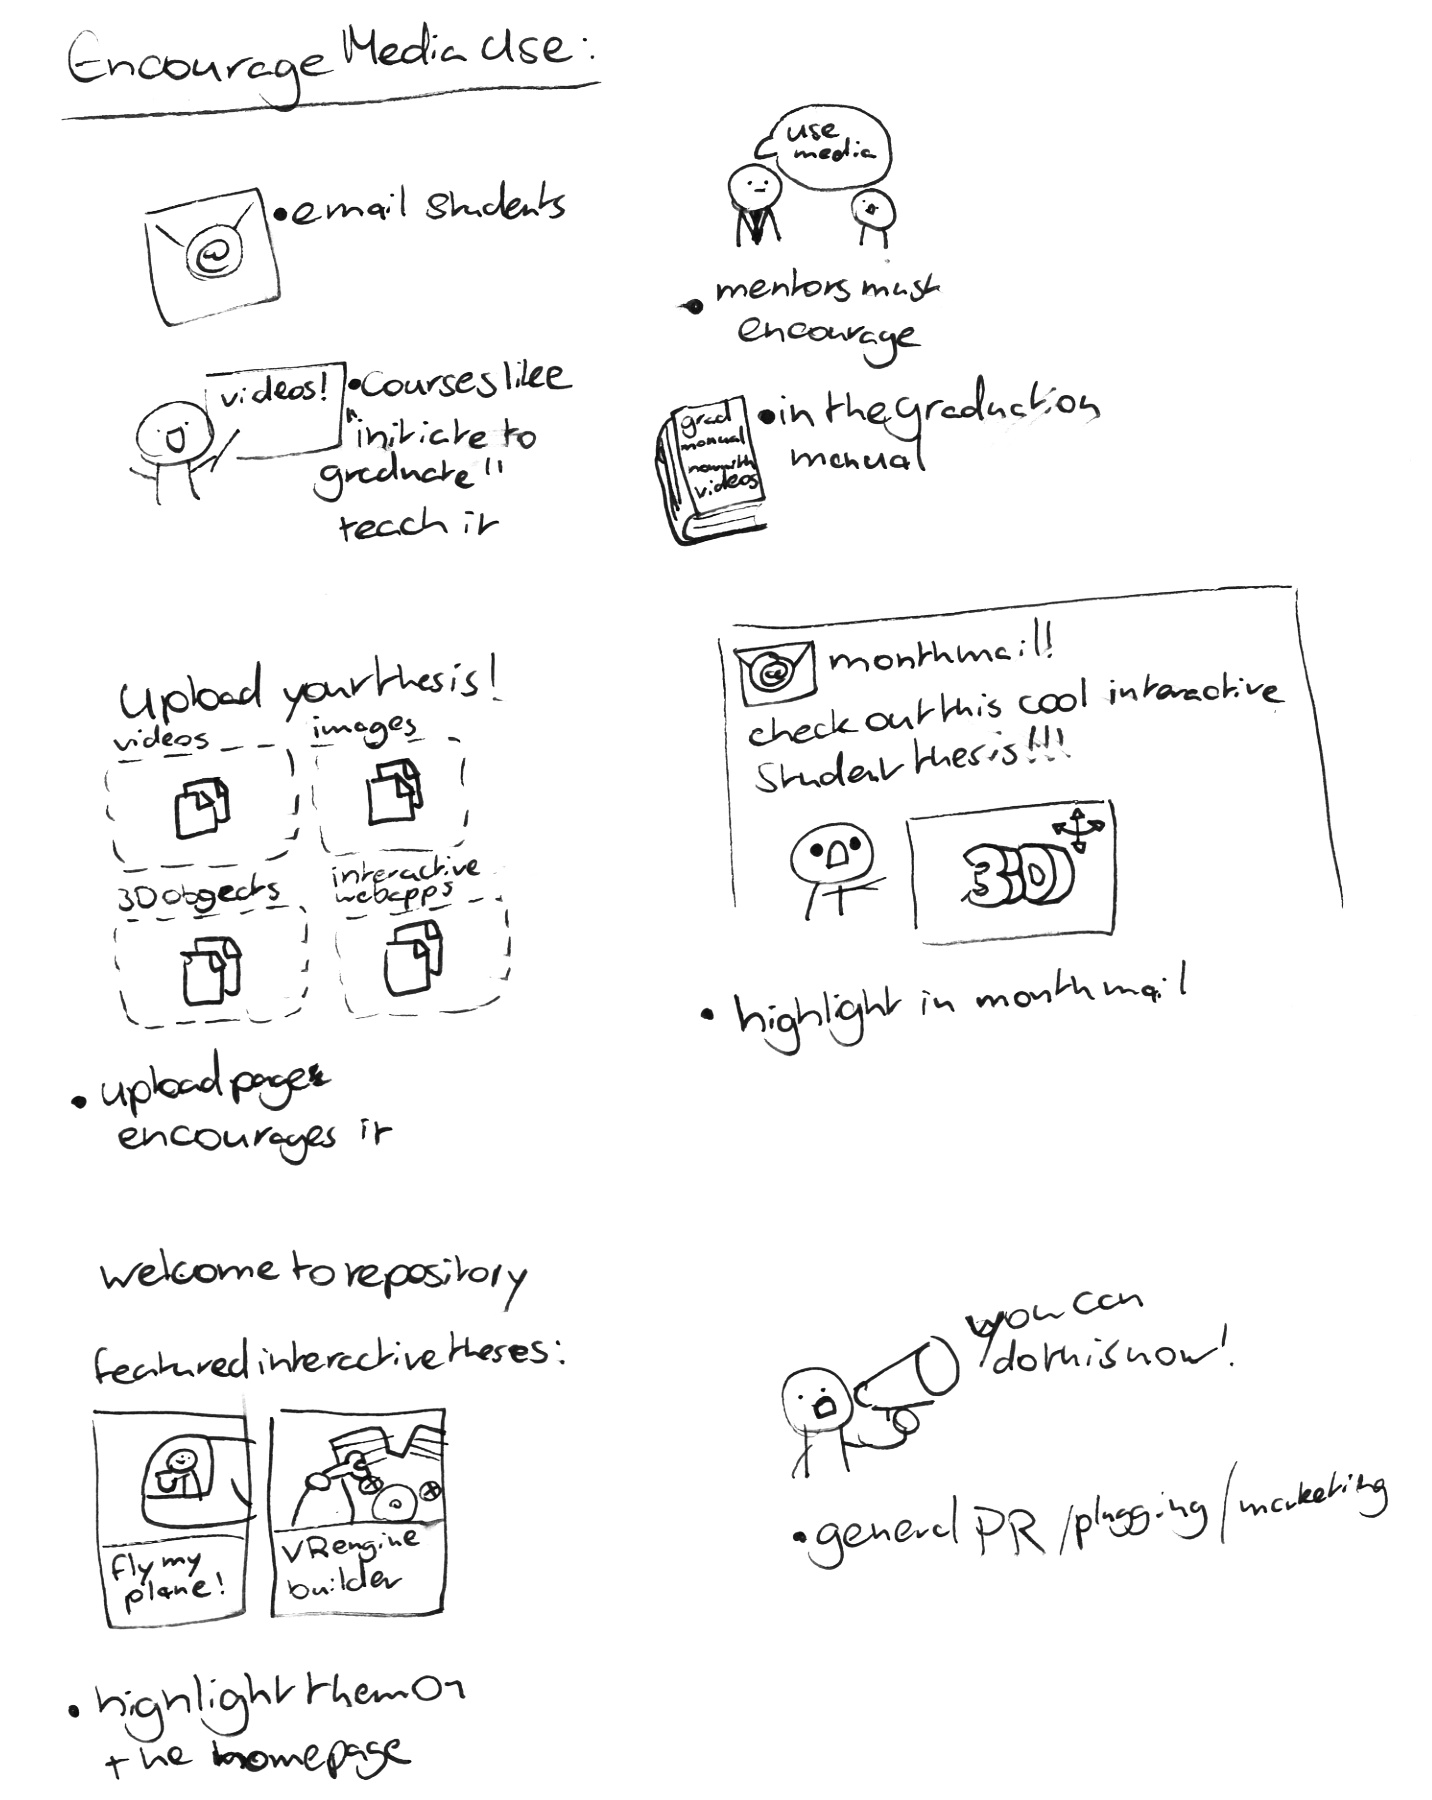 Encourage Media Use:
@
•email students
use
media
•mentors must
encourage
videos!
•Courses like
"initiate to
graduate"
teach it
grad
manual
now with
videos
•in the graduation
manual
upload your thesis!
videos
images
3D obgects
interactive
webapps
•upload page
encourages it
@
monthmail!
check out this cool interactive
student thesis!!!
3D
•highlight in monthmail
welcome to repository
featured interactive theses:
fly my
plane!
VR engine
builder
•highlight them on
the homepage
you can
do this now!
•general PR/plugging/marketing